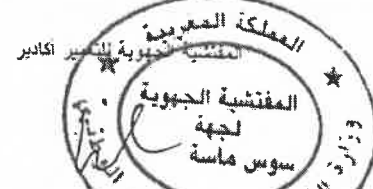 المملكة المغربية
المفتشية الجهوية للتعمير أكادير
المفتشية الجهوية
لجهة
سوس ماسة
وزارة